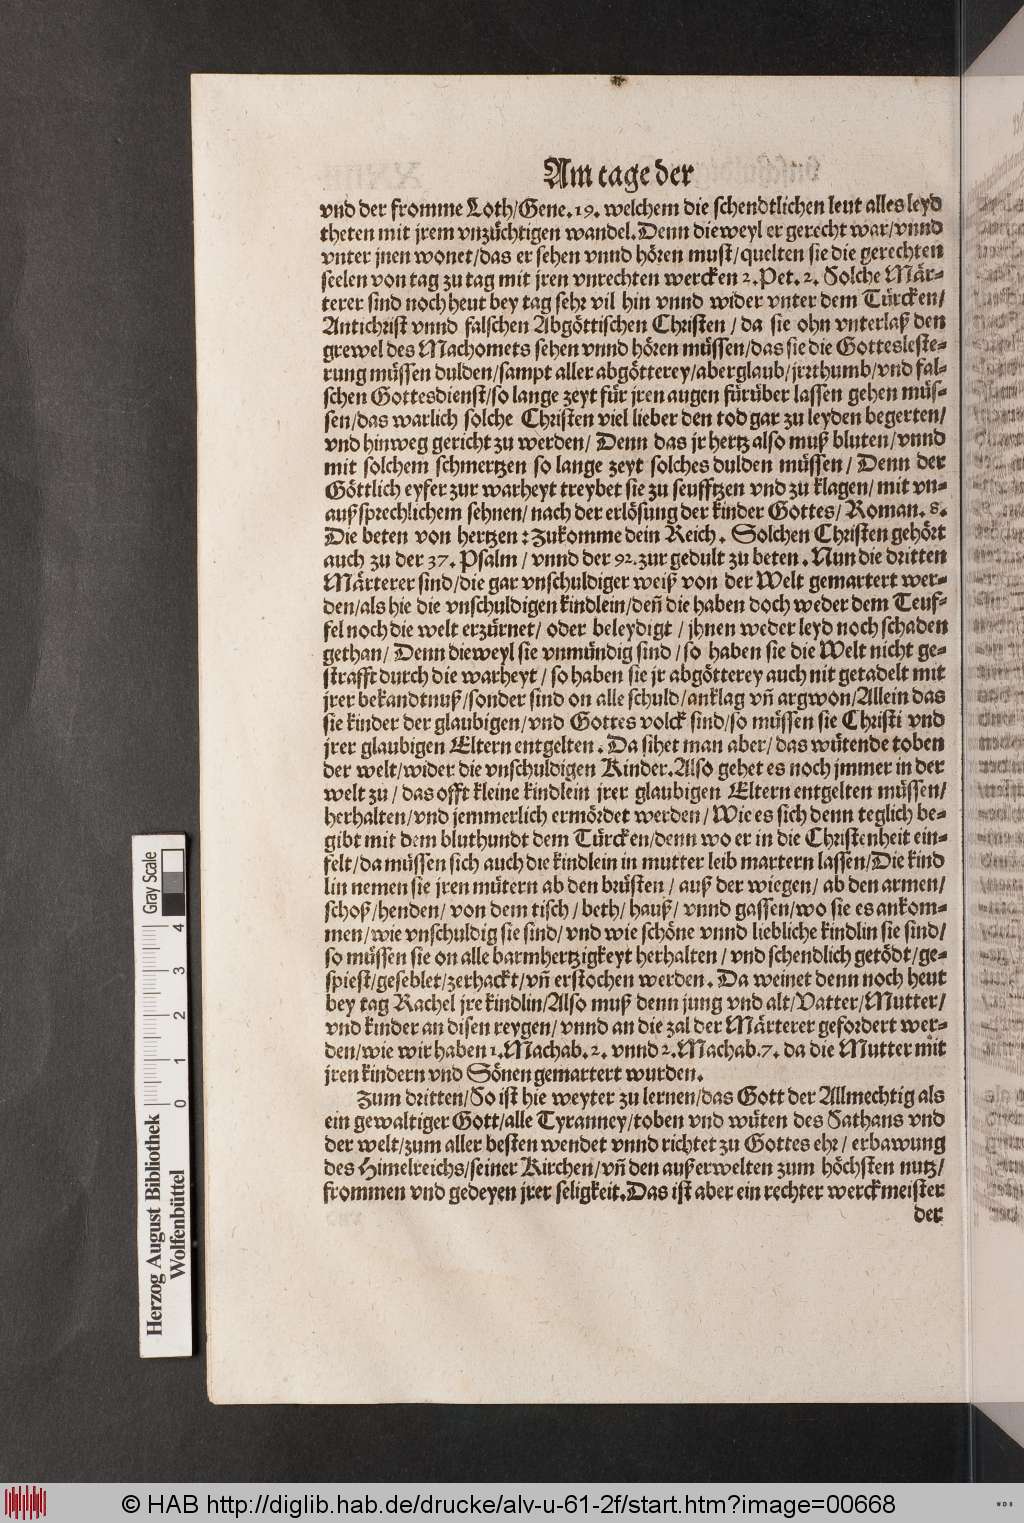 Am tage der
vnd der fromme Loth/Gene.19. welchem die schendtlichen leut alles leyd
theten mit jrem vnzüchtigen wandel. Denn dieweyl er gerecht war/vnnd
vnter jnen wonet/das er sehen vnnd hören must/quelten sie die gerechten
seelen von tag zu tag mit jren vnrechten wercken 2.Pet.2. Solche Mär-
terer sind noch heut bey tag sehr vil hin vnnd wider vnter dem Türcken/
Antichrist vnnd falschen Abgöttischen Christen/ da sie ohn vnterlaß den
grewel des Machomets sehen vnnd hören müssen/das sie die Gotteslesте-
rung müssen dulden/sampt aller abgötterey/aberglaub/jrrthumb/vnd fal-
schen Gottesdienst/so lange zeyt für jren augen fürüber lassen gehen müs-
sen/das warlich solche Christen viel lieber den tod gar zu leyden begerten/
vnd hinweg gericht zu werden/ Denn das jr hertz also muß bluten/vnnd
mit solchem schmertzen so lange zeyt solches dulden müssen/ Denn der
Göttlich eyfer zur warheyt treybet sie zu seufftzen vnd zu klagen/ mit vn-
außsprechlichem sehnen/ nach der erlösung der kinder Gottes/ Roman. 8.
Die beten von hertzen: Zukomme dein Reich. Solchen Christen gehört
auch zu der 37. Psalm/ vnnd der 92. zur gedult zu beten. Nun die dritten
Märterer sind/die gar vnschuldiger weiß von der Welt gemartert wer-
den/als hie die vnschuldigen kindlein/deñ die haben doch weder dem Teuf-
fel noch die welt erzürnet/ oder beleydigt/ jhnen weder leyd noch schaden
gethan/ Denn dieweyl sie vnmündig sind/ so haben sie die Welt nicht ge-
strafft durch die warheyt/ so haben sie jr abgötterey auch nit getadelt mit
jrer bekandtnuß/sonder sind on alle schuld/anklag vñ argwon/Allein das
sie kinder der glaubigen/vnd Gottes volck sind/so müssen sie Christi vnd
jrer glaubigen Eltern entgelten. Da sihet man aber/ das wütende toben
der welt/wider die vnschuldigen Kinder. Also gehet es noch jmmer in der
welt zu/ das offt kleine kindlein jrer glaubigen Eltern entgelten müssen/
herhalten/vnd jemmerlich ermördet werden/ Wie es sich denn teglich be-
gibt mit dem bluthundt dem Türcken/denn wo er in die Christenheit ein-
felt/da müssen sich auch die kindlein in mutter leib martern lassen/Die kind
lin nemen sie jren mütern ab den brüsten/ auß der wiegen/ ab den armen/
schoß/henden/ von dem tisch/ beth/ hauß/ vnnd gassen/wo sie es ankom-
men/wie vnschuldig sie sind/ vnd wie schöne vnnd liebliche kindlin sie sind/
so müssen sie on alle barmhertzigkeyt herhalten/ vnd schendlich getödt/ge-
spiest/geseblet/zerhackt/vñ erstochen werden. Da weinet denn noch heut
bey tag Rachel jre kindlin/Also muß denn jung vnd alt/Vatter/Mutter/
vnd kinder an disen reygen/ vnnd an die zal der Märterer gefordert wer-
den/wie wir haben 1.Machab.2. vnnd 2.Machab.7. da die Mutter mit
jren kindern vnd Sönen gemartert wurden.
Zum dritten/So ist hie weyter zu lernen/das Gott der Allmechtig als
ein gewaltiger Gott/alle Tyranney/toben vnd wüten des Sathans vnd
der welt/zum aller besten wendet vnnd richtet zu Gottes ehr/ erbawung
des Himelreichs/seiner Kirchen/vñ den außerwelten zum höchsten nutz/
frommen vnd gedeyen jrer seligkeit. Das ist aber ein rechter werckmeister
der
Herzog August Bibliothek
Wolfenbüttel
Gray Scale
0 1 2 3 4
© HAB http://diglib.hab.de/drucke/alv-u-61-2f/start.htm?image=00668